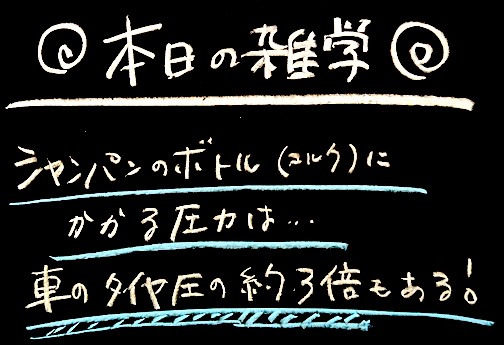 本日の雑学
シャンパンのボトル(コルク)に
かかる圧力は…
車のタイヤ圧の約3倍もある!